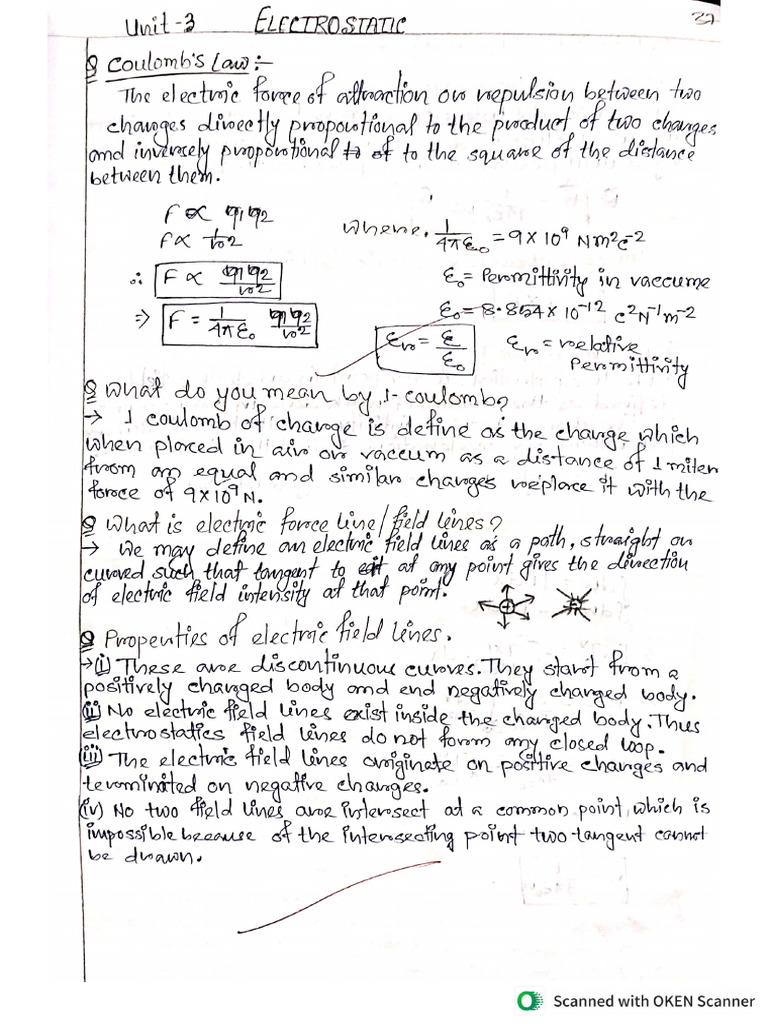 Unit-3 ELECTROSTATIC 37
Q Coulomb's Law:-
The electric force of attraction or repulsion between two
charges directly proportional to the product of two charges
and inversely proportional to of to the square of the distance
between them.
F ∝ q1q2
F ∝ 1/r2
where, 1/4πε0 = 9 × 10^9 Nm2c-2
∴ F ∝ q1q2/r2
ε0 = Permittivity in vaccume
⇒ F = 1/4πε0 q1q2/r2
ε0 = 8.854 × 10^-12 c2N-1m-2
εr = ε/ε0
εr = relative
Permittivity
Q What do you mean by, 1- coulomb?
→ 1 coulomb of charge is define as the charge which
when placed in air or vaccum as a distance of 1 miter
from an equal and similar charges replace it with the
force of 9×10^9 N.
Q What is electric force line/field lines?
→ We may define an electric field lines as a path, straight or
curved such that tangent to at any point gives the direction
of electric field intensity at that point.
Q Properties of electric field lines.
→(i) These are discontinuous curves. They start from a
positively charged body and end negatively charged body.
(ii) No electric field lines exist inside the charged body. Thus
electrostatics field lines do not form any closed loop.
(iii) The electric field lines originate on positive charges and
terminated on negative charges.
(iv) No two field lines are intersect at a common point, which is
impossible because of the intersecting point two tangent cannot
be drawn.
Scanned with OKEN Scanner